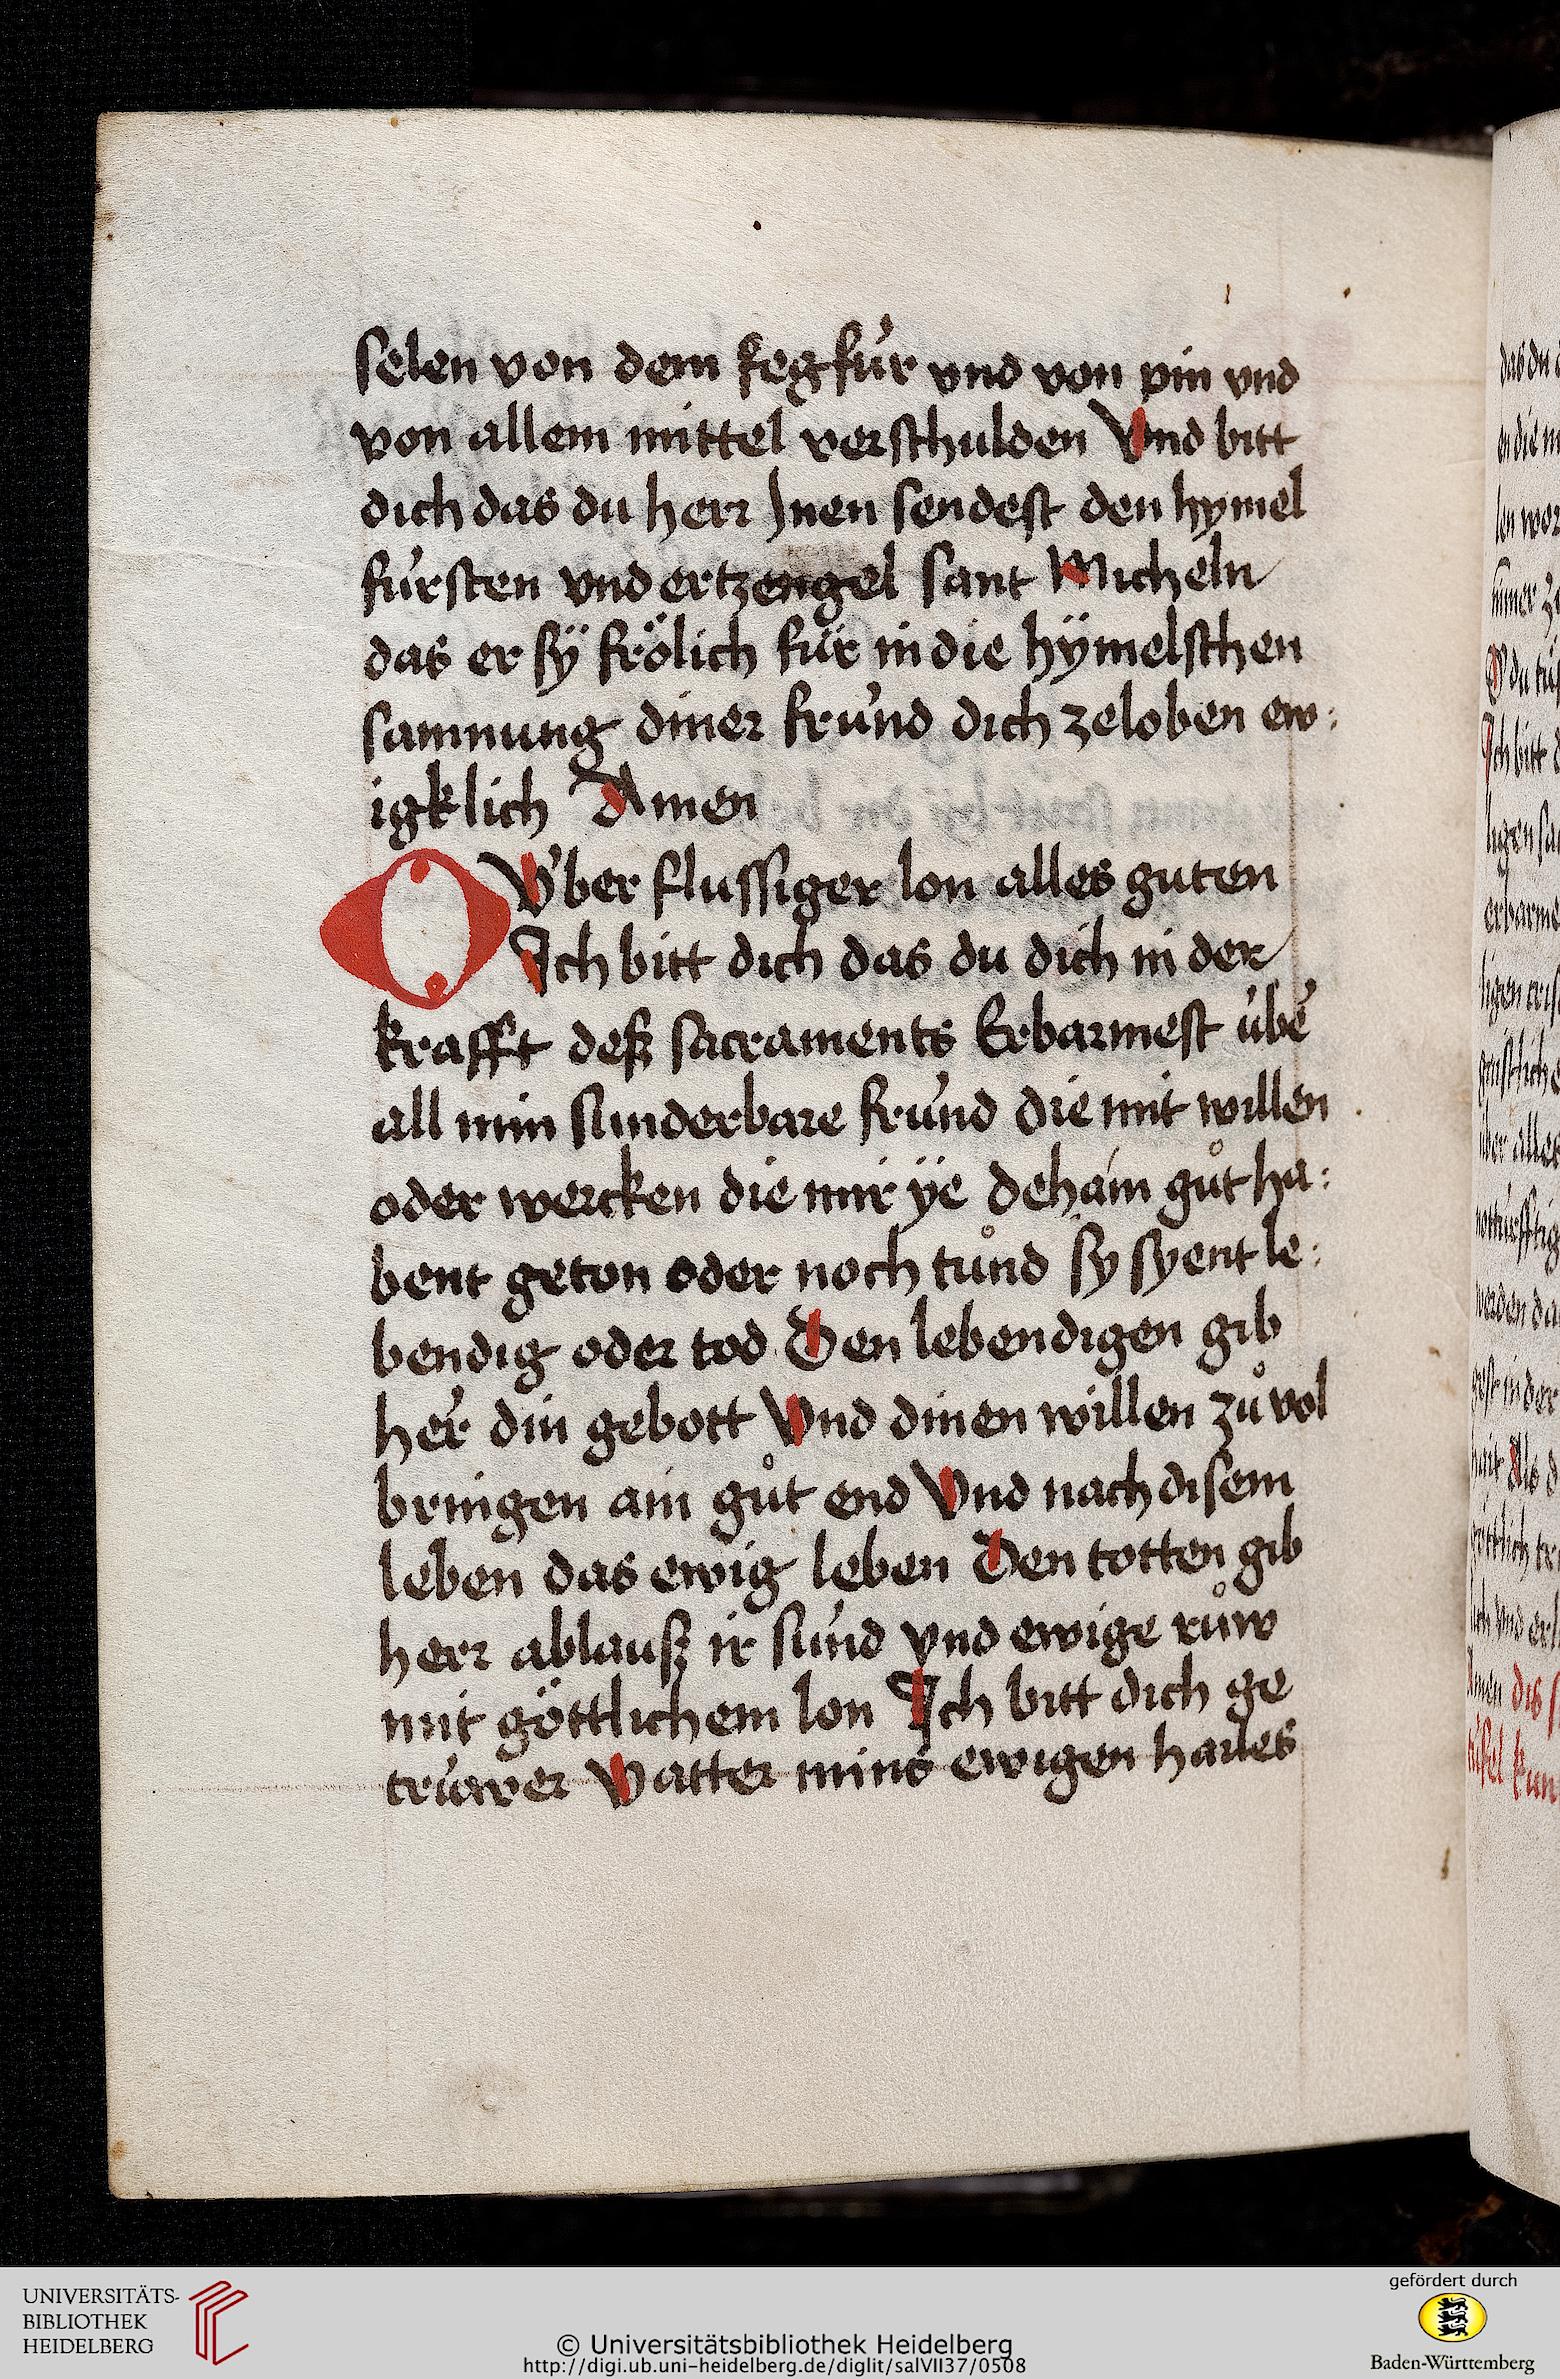 selen von dem fegfür vnd von pin vnd
von allem mittel verschulden Vnd bitt
dich das du herr Inen sendest den hymel
fürsten vnd ertzengel sant Micheln
das er sÿ frölich für in die hÿmelschen
samnung diner fründ dich zeloben ew:
igklich Amen
O V̈ber flussiger lon alles guten
Ich bitt dich das du dich in der
krafft deß sacraments Erbarmest übe
all min sunderbare fründ die mit willen
oder wercken die mir ÿe dehain gůt ha:
bent geton oder noch tůnd sy syent le:
bendig oder tod Den lebendigen gib
her din gebott Vnd dinen willen zů vol
bringen ain gůt end Vnd nach disem
leben das ewig leben Den totten gib
herr ablauß ir sünd vnd ewige růw
mit göttlichem lon Ich bitt dich ge
trüwer Vatter mins ewigen hailes
das du
UNIVERSITÄTS-
BIBLIOTHEK
HEIDELBERG
© Universitätsbibliothek Heidelberg
http://digi.ub.uni-heidelberg.de/diglit/salVII37/0508
gefördert durch
Baden-Württemberg